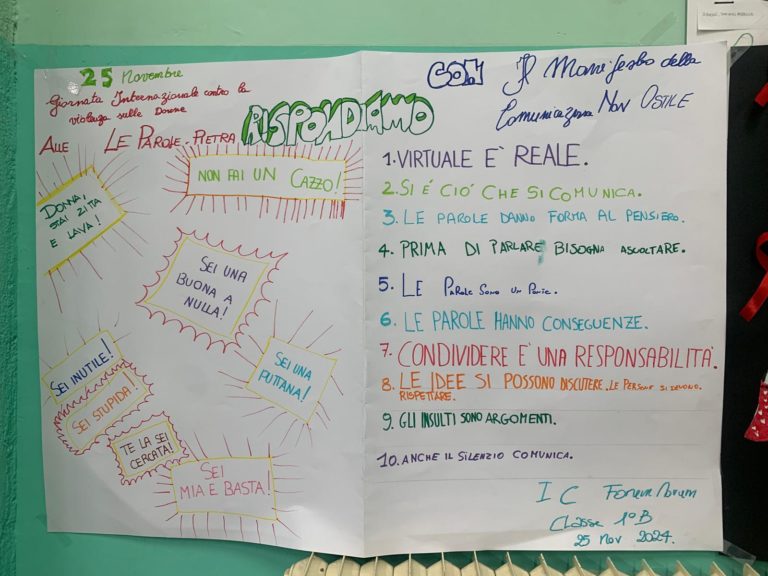 25 Novembre
Giornata Internazionale contro la
violenza sulle Donne
ALLE LE PAROLE-PIETRA RISPONDIAMO
NON FAI UN CAZZO!
DONNA,
STAI ZITTA
E LAVA!
SEI UNA
BUONA A
NULLA!
SEI UNA
PUTTANA!
SEI INUTILE!
SEI STUPIDA!
TE LA SEI
CERCATA!
SEI
MIA E BASTA!
CON Il Manifesto della
Comunicazione Non Ostile
1. VIRTUALE È REALE.
2. SI É CIÓ CHE SI COMUNICA.
3. LE PAROLE DANNO FORMA AL PENSIERO.
4. PRIMA DI PARLARE BISOGNA ASCOLTARE.
5. LE PAROLE SONO UN PONTE.
6. LE PAROLE HANNO CONSEGUENZE.
7. CONDIVIDERE È UNA RESPONSABILITÀ.
8. LE IDEE SI POSSONO DISCUTERE. LE PERSONE SI DEVONO
RISPETTARE.
9. GLI INSULTI SONO ARGOMENTI.
10. ANCHE IL SILENZIO COMUNICA.
I C Forum Novum
Classe 1°B
25 Nov 2024.